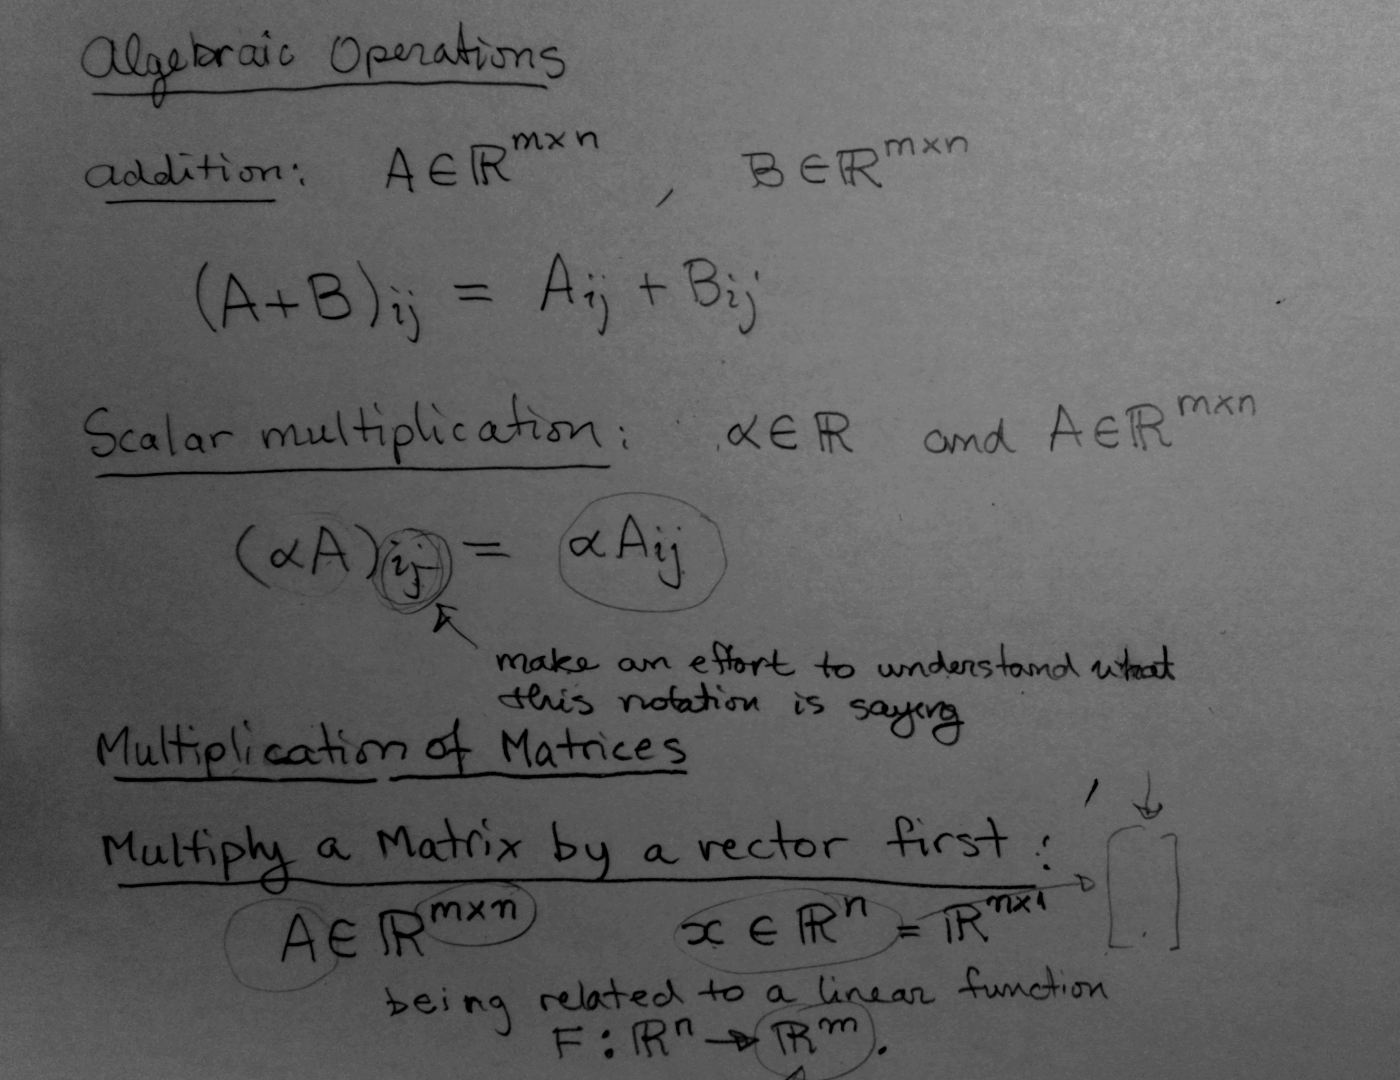 Algebraic Operations
addition: A ∈ ℝ^{m×n} , B ∈ ℝ^{m×n}
(A+B)_{ij} = A_{ij} + B_{ij}
Scalar multiplication: α ∈ ℝ and A ∈ ℝ^{m×n}
(αA)_{ij} = αA_{ij}
make an effort to understand what
this notation is saying
Multiplication of Matrices
Multiply a Matrix by a vector first:
A ∈ ℝ^{m×n} x ∈ ℝ^n = ℝ^{n×1}
being related to a linear function
F: ℝ^n → ℝ^m.